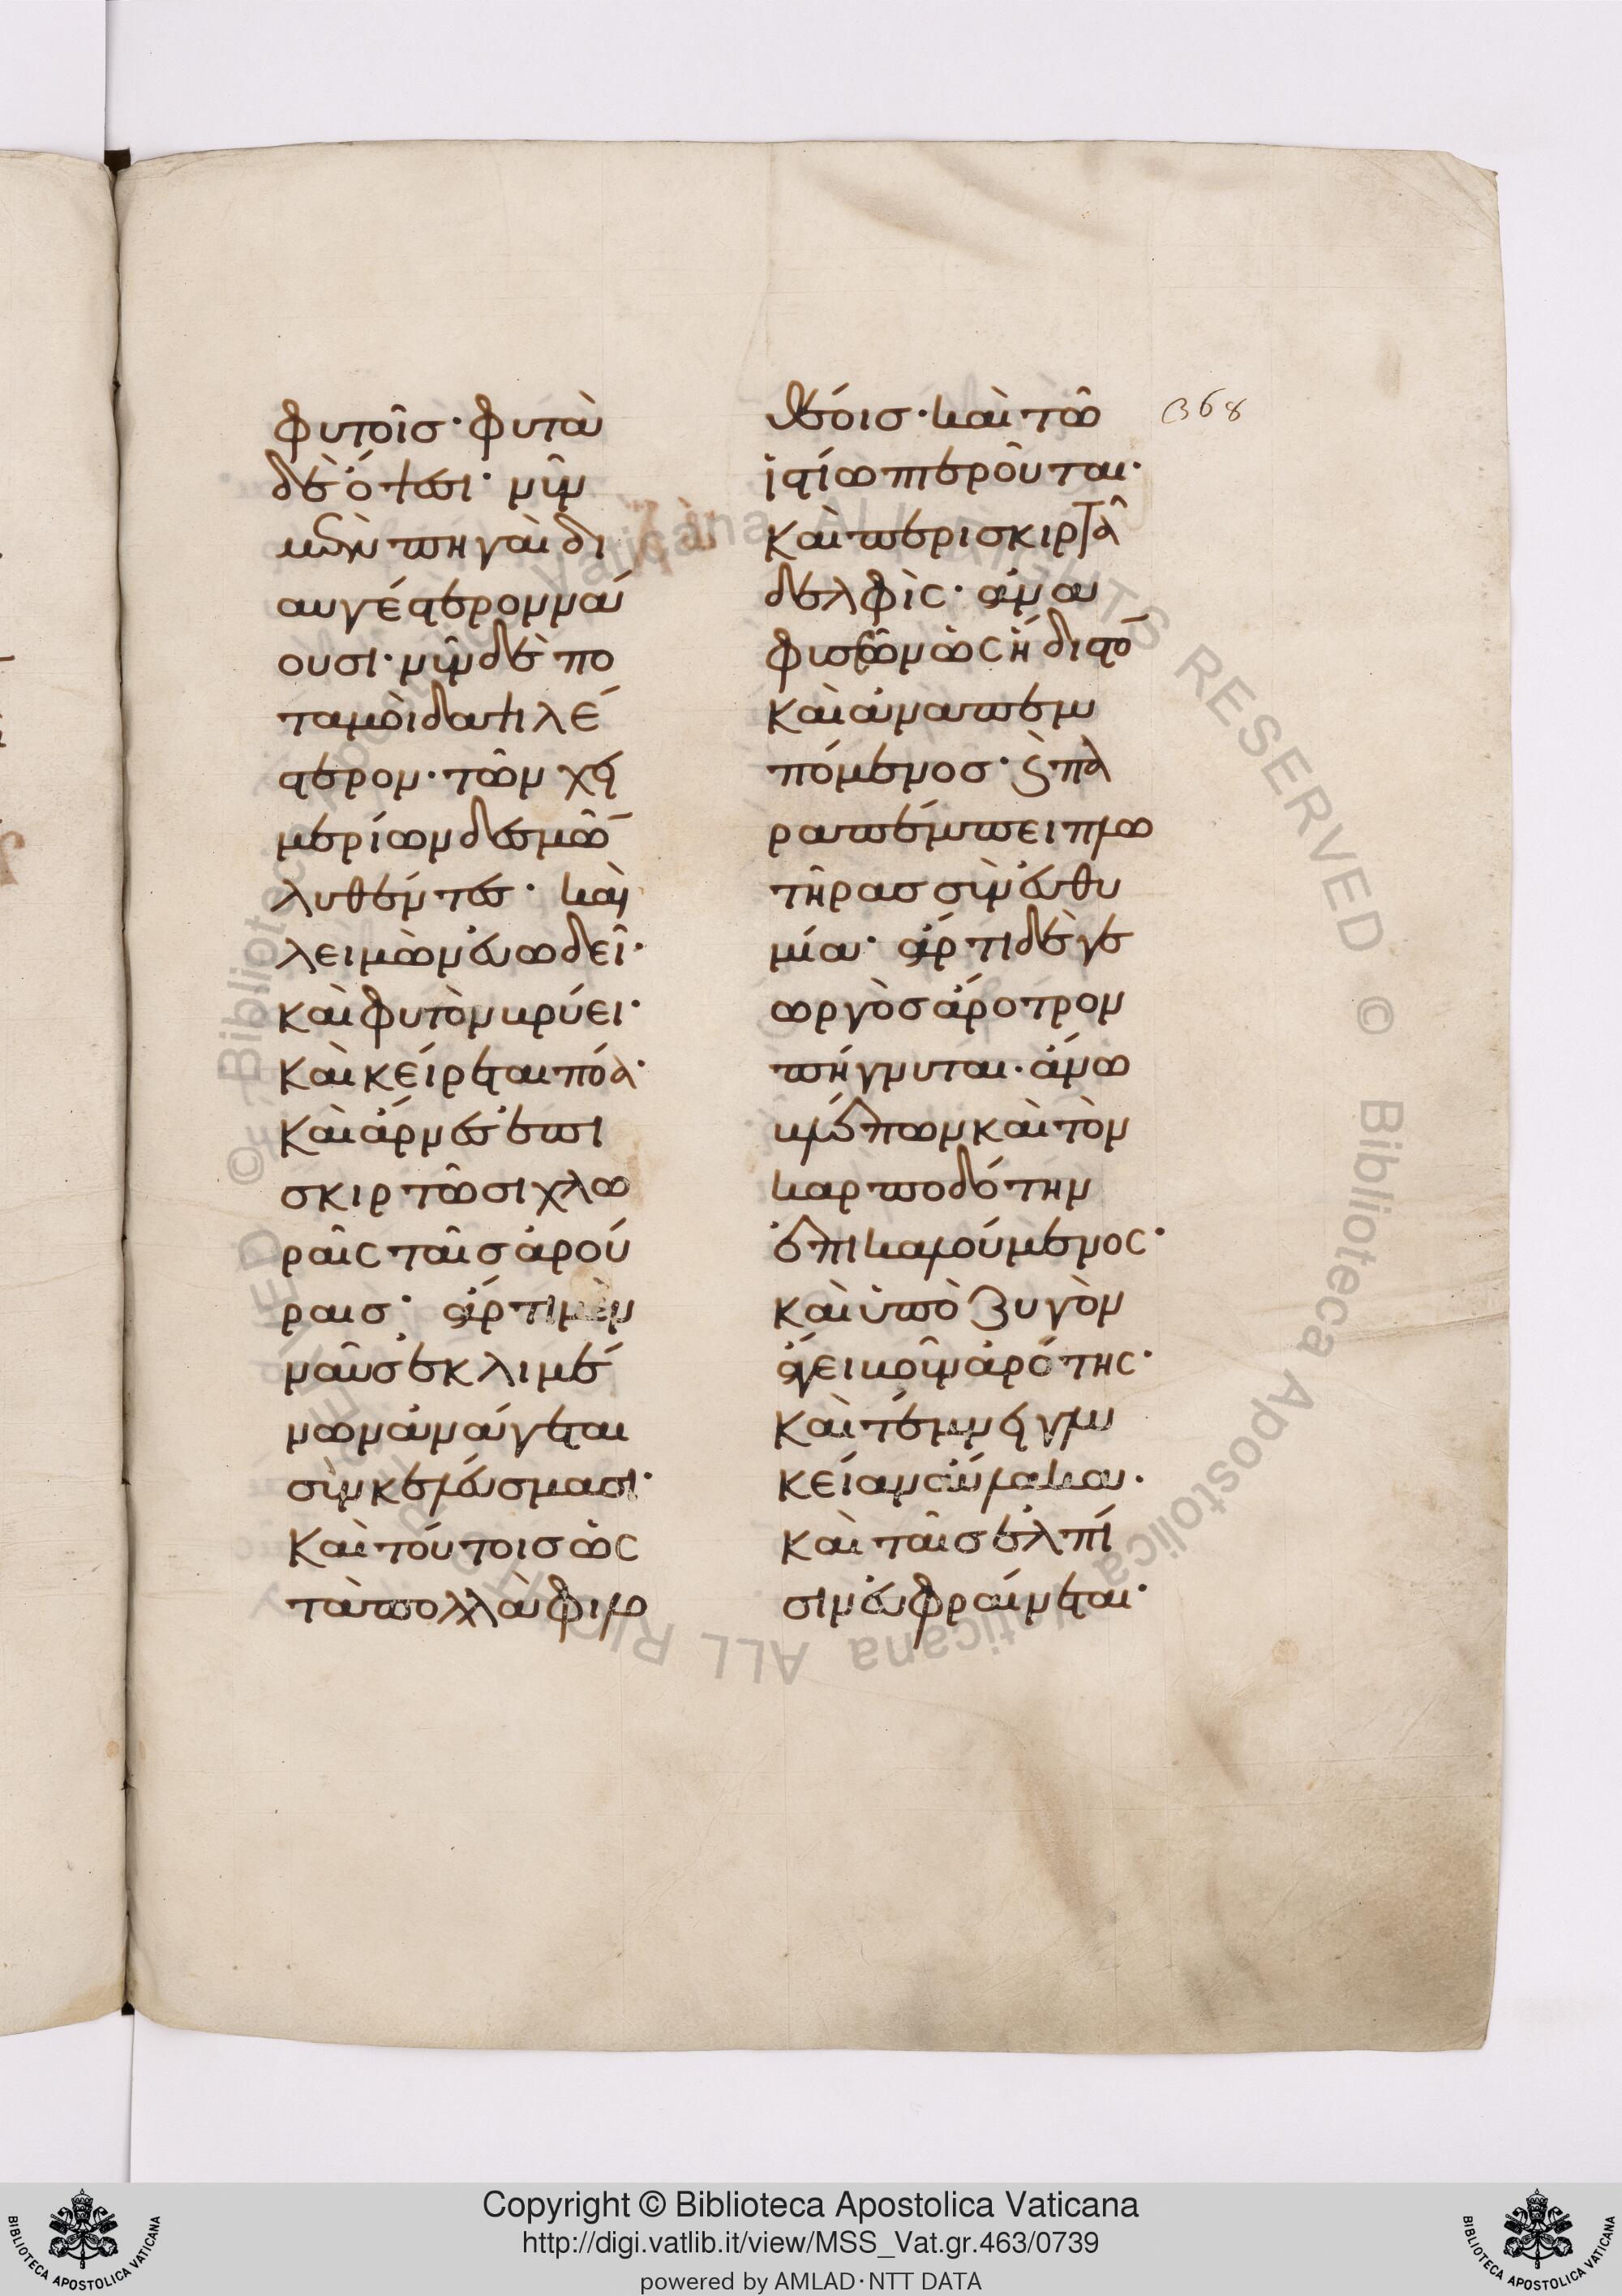 φυτοῖσ· φυτὰ
δὲ ὄψεσι· νῦν
μὲν πηγαὶ δι
αυγέστερον νά
ουσι· νῦν δὲ πο
ταμοὶ δαψιλέ
στερον· τῶν χει
μερίων δεσμῶ
λυθέντεσ· καὶ
λειμὼν εὐωδεῖ·
καὶ φυτὸν βρύει·
καὶ κείρεται πόα·
καὶ ἄρνεσ ἐπι
σκιρτῶσι χλω
ραῖς ταῖσ ἀρού
ραισ· ἄρτι μὲν
ναῦσ ἐκ λιμέ
νων ἀνάγεται
σὺν κελεύσμασι·
καὶ τούτοισ ὡς
τὰ πολλὰ φιλο
θέοισ· καὶ τῶ
ἱστίω πτεροῦται·
καὶ περισκιρτᾶ
δελφὶς· ἀνα
φυσῶν ὡς ἥδιστο
καὶ ἀναπεμ
πόμενοσ· καὶ πα
ραπέμπει πλω
τῆρασ σὺν εὐθυ
μία· ἄρτι δὲ γε
ωργὸσ ἄροτρον
πήγνυται· ἄνω
βλέπων καὶ τὸν
καρποδότην
ἐπικαλούμενος·
καὶ ὑπὸ ζυγὸν
ἄγει βοῦν ἀρότης·
καὶ τέμνει γλυ
κείαν αὔλακα·
καὶ ταῖσ ἐλπί
σιν εὐφραίνεται·
368
Copyright © Biblioteca Apostolica Vaticana
http://digi.vatlib.it/view/MSS_Vat.gr.463/0739
powered by AMLAD·NTT DATA
BIBLIOTECA APOSTOLICA VATICANA
BIBLIOTECA APOSTOLICA VATICANA
© Biblioteca Apostolica Vaticana ALL RIGHTS RESERVED © Biblioteca Apostolica Vaticana ALL RIGHTS RESERVED